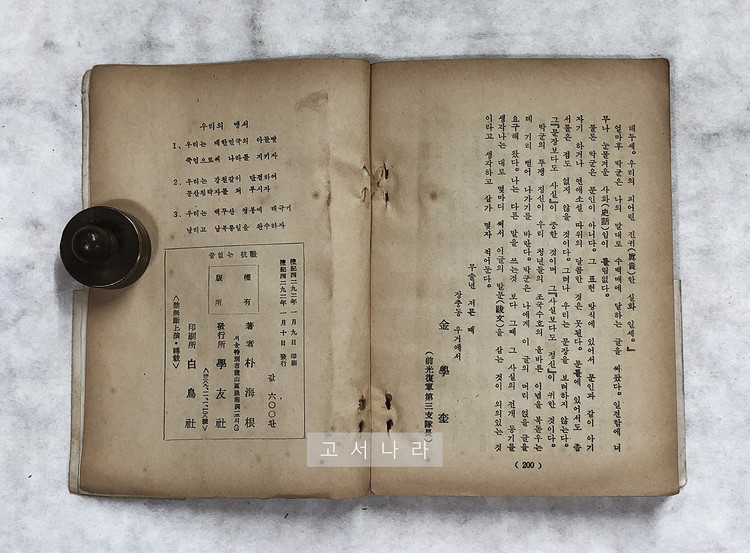 해두세。우리의 피어린 진귀(眞貴)한 실화 일세。』
얼마후 박군은 나의 말대로 수백매에 달하는 글을 써왔다。일견함에 너
무나 눈물겨운 사화(史話)임이 틀림없다。
물론 박군은 문인이 아니다。그 표현 방식에 있어서 문인과 같이 아기
자기 하거나 연애소설 따위의 달콤한 것은 못된다。문틀에 있어서도 좀
서툴은 점도 없지 않을 것이다。그러나 우리는 문장을 보려하지 않는다。
그『문장보다도 사실』이 중한 것이며 그『사실보다도 정신』이 귀한 것이다。
박군의 투쟁 정신이 우리 청년들의 조국수호의 올바른 이념을 북돋우는
데 기리 뻗어 나가기를 바란다。박군은 나에게 이 글의 머리 글을
요구해 왔다。나는 다른 말을 쓰는것 보다 그때 그 사실의 전개 동기를
생각나는 대로 몇마디 써서 이글의 발문(跋文)을 삼는 것이 의의있는 것
이라고 생각하고 삼가 몇자 적어둔다。
무술년 저문 때
장충동 우거에서
金學奎
(前光復軍第三支隊長)
(200)
우리의 맹서
1、우리는 대한민국의 아들딸
죽엄으로써 나라를 지키자
2、우리는 강철같이 단결하여
공산침략자를 쳐 부시자
3、우리는 백두산 영봉에 태극기
날리고 남북통일을 완수하자
끝없는 抗戰
檀紀四二九二年 一月九日 印刷
檀紀四二九二年 一月十日 發行
값 六〇〇환
版權
所有
著者 朴海根
서울特別市龍山區
發行所 學友社
印刷所 白鳥社
<禁無斷上演・轉載>
고서나라